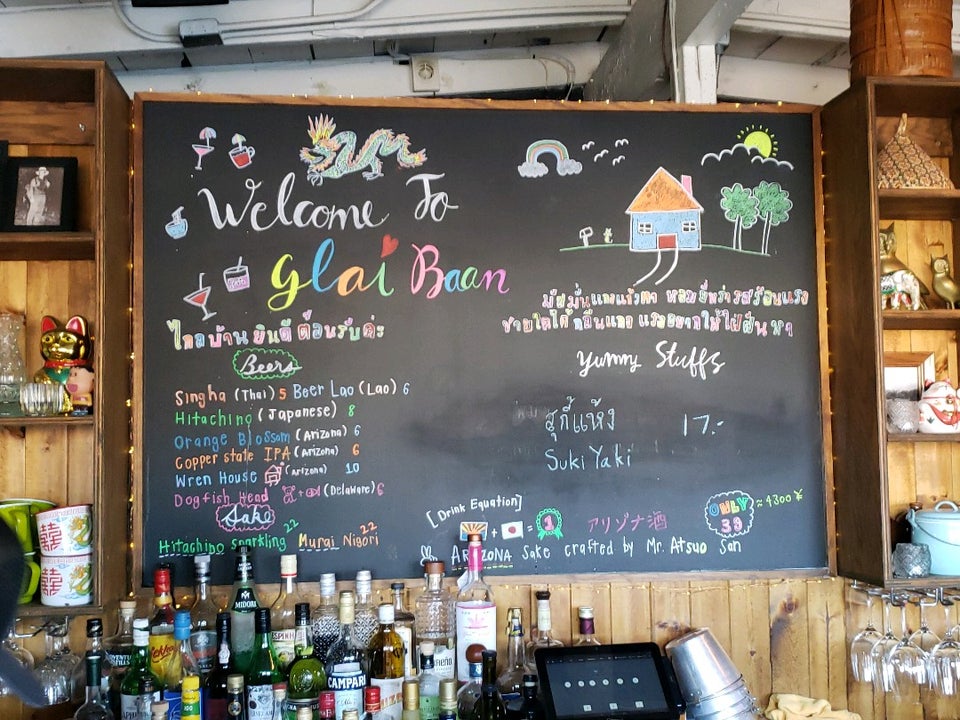 Welcome To
Glai Baan
ไกลบ้านยินดีต้อนรับค่ะ
Beers
Singha (Thai) 5 Beer Lao (Lao) 6
Hitachino (Japanese) 8
Orange Blossom (Arizona) 6
Copper state IPA (Arizona) 6
Wren House (Arizona) 10
Dogfish Head (Delaware) 6
Sake
Hitachino Sparkling 22 Murai Nigori 22
มัสมั่นแกงแก้วตา หอมยี่หร่ารสร้อนแรง
ชายใดได้กลืนแกง แรงอยากให้ใฝ่ฝันหา
Yummy Stuffs
สุกี้แห้ง 17.-
Suki Yaki
[Drink Equation]
+ = 1 アリゾナ酒
ONLY 39 ≈ 4300 ¥
ARIZONA Sake crafted by Mr. Atsuo San
MIDORI
CAMPARI
ESPINH